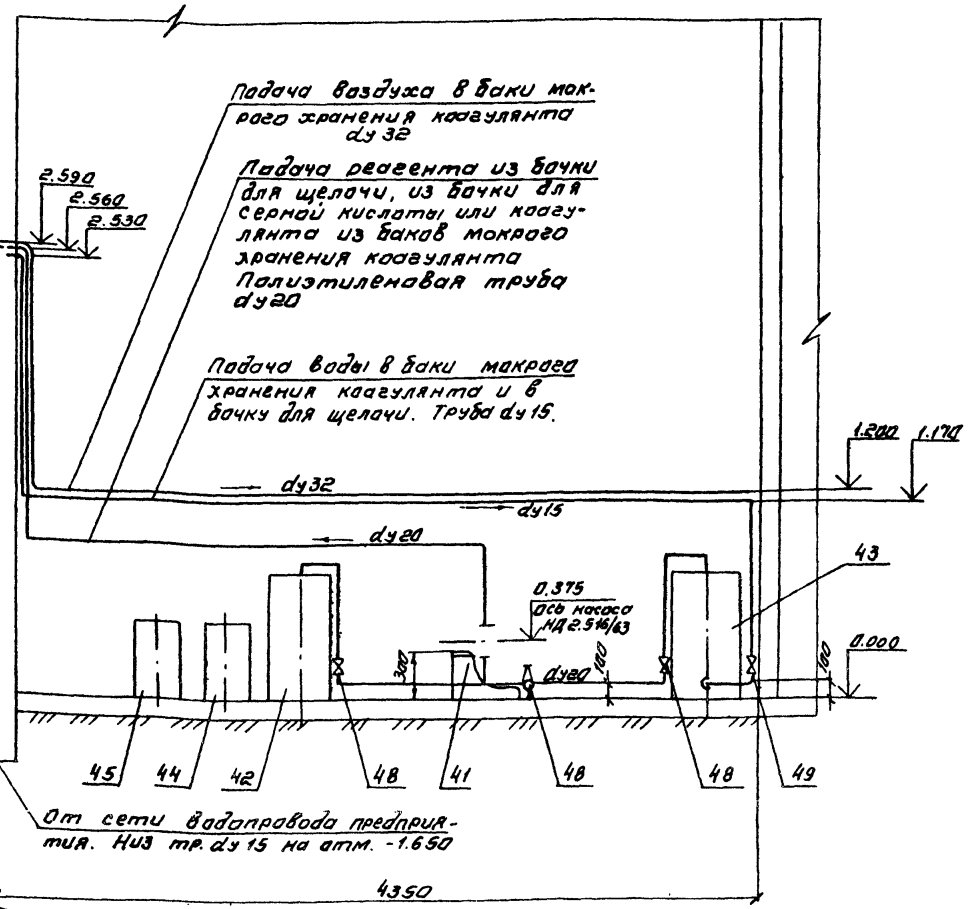 Подача воздуха в баки мок-
рого хранения коагулянта
dу 32
Подача реагента из бочки
для щёлочи, из бочки для
серной кислоты или коагу-
лянта из баков мокрого
хранения коагулянта
Полиэтиленовая труба
dу20
2.590
2.560
2.530
Подача воды в баки мокрого
хранения коагулянта и в
бочку для щелочи. Труба dу 15.
1.200
1.170
dу32
dу15
dу20
43
0.375
ось насоса
НД 2.5 16/63
0.000
300
dу20
100
100
45
44
42
48
41
48
48
49
От сети водопровода предприя-
тия. Низ тр. dу 15 на отм. -1.650
4350